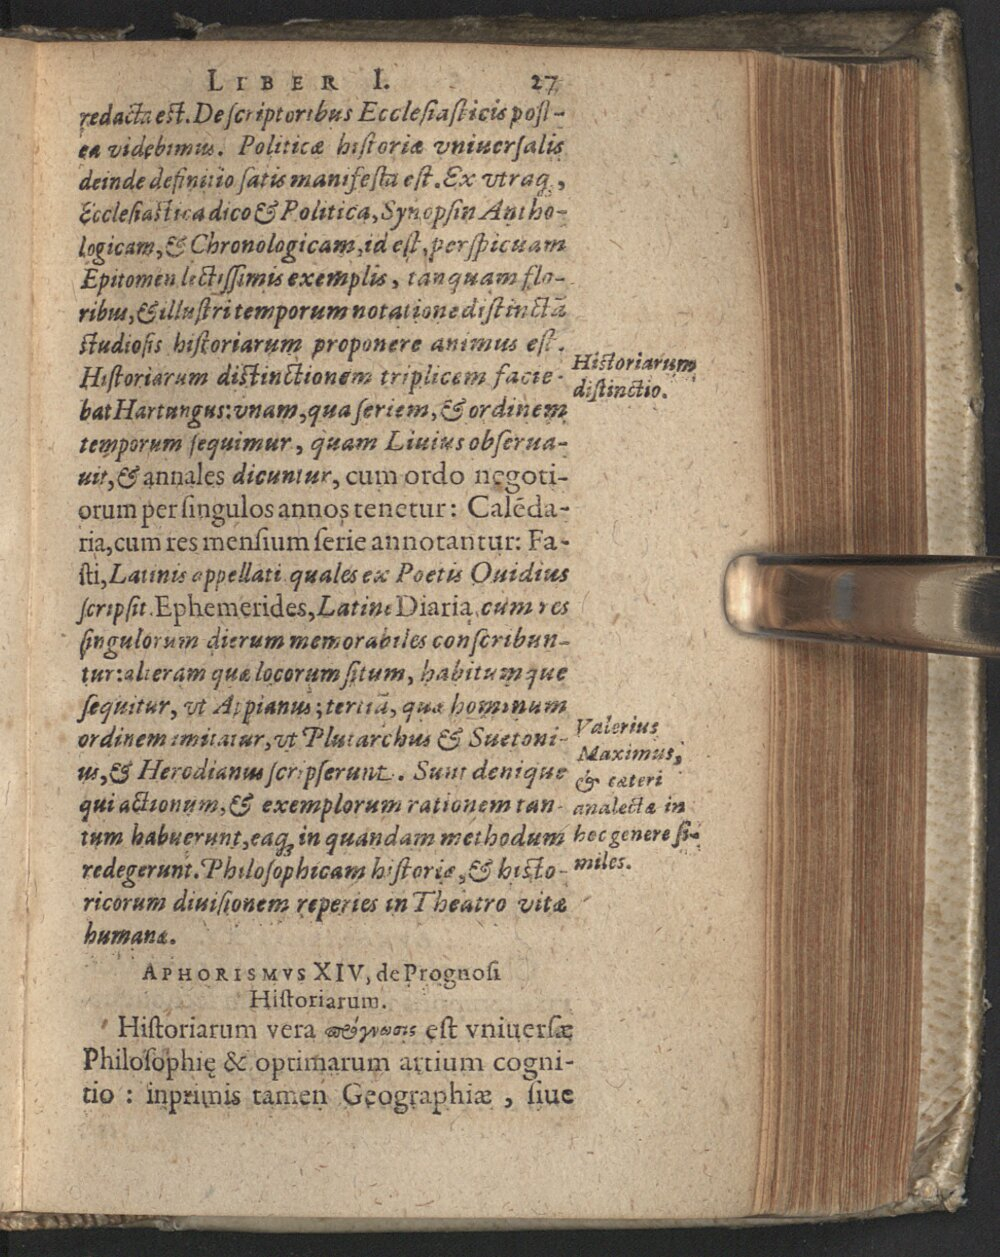 LIBER I. 27
redacta est. De scriptoribus Ecclesiasticis post-
ea videbimus. Politicæ historiæ vniuersalis
deinde definitio satis manifesta est. Ex vtraq,
Ecclesiastica dico & Politica, Synopsin Antho-
logicam, & Chronologicam, id est, perspicuam
Epitomen lectissimis exemplis, tanquam flo-
ribus, & illustri temporum notatione distinctã
studiosis historiarum proponere animus est.
Historiarum distinctionem triplicem facie-
bat Hartungus: vnam, qua seriem, & ordinem
temporum sequimur, quam Liuius obserua-
uit, & annales dicuntur, cum ordo negoti-
orum per singulos annos tenetur: Calẽda-
ria, cum res mensium serie annotantur: Fa-
sti, Latinis appellati quales ex Poetis Ouidius
scripsit. Ephemerides, Latine Diaria, cum res
singulorum dierum memorabiles conscribun-
tur: alteram quæ locorum situm, habitumque
sequitur, vt Appianus; tertiã, quæ hominum
ordinem imitatur, vt Plutarchus & Suetoni-
us, & Herodianus scripserunt. Sunt denique
qui actionum, & exemplorum rationem tan-
tum habuerunt, eaq; in quandam methodum
redegerunt. Philosophicam historiæ, & histo-
ricorum diuisionem reperies in Theatro vitæ
humanæ.
Historiarum
distinctio.
Valerius
Maximus,
& cæteri
analectæ in
hoc genere si-
miles.
APHORISMVS XIV, de Prognosi
Historiarum.
Historiarum vera πρόγνωσις est vniuersæ
Philosophię & optimarum artium cogni-
tio : inprimis tamen Geographiæ , siue